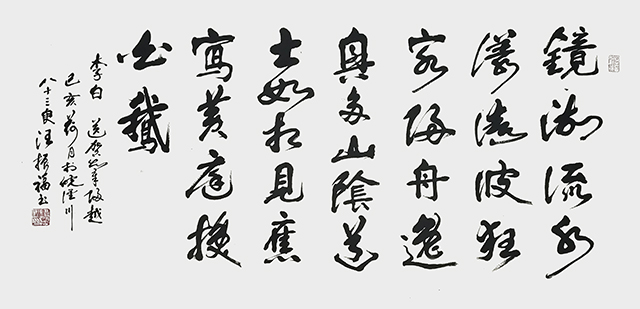 鏡湖流水
漾清波狂
客歸舟逸
興多山陰道
士如相見應
寫黄庭換
白鵝
李白 送賀賓客歸越
己亥荷月於皖潛川
八十三叟汪振福書